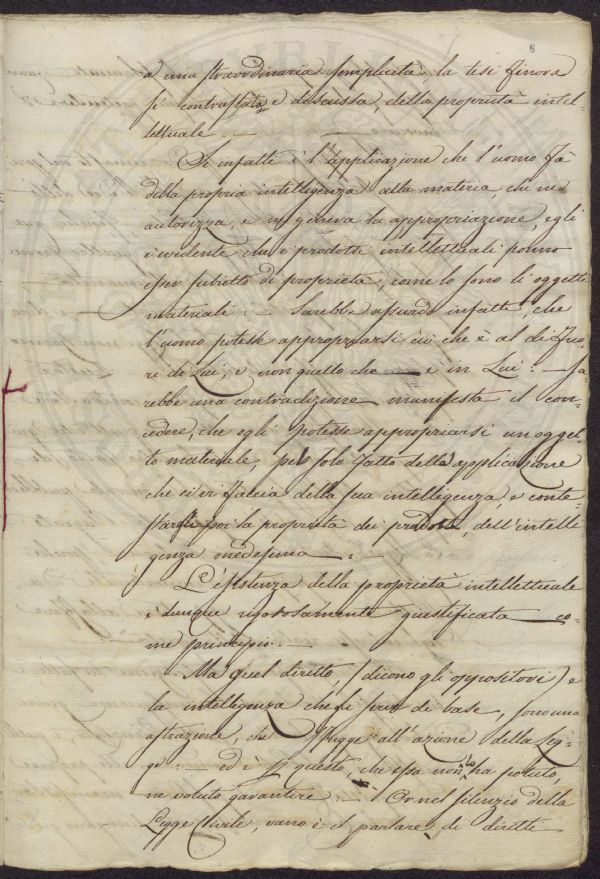 6
a una straordinaria semplicità la tesi finora
sì contrastata e discussa, della proprietà intel-
lettuale. —
Se infatti è l'applicazione che l'uomo fà
della propria intelligenza alla materia, che ne
autorizza, e ne genera la appropriazione, egli
è evidente che i prodotti intellettuali ponno
esser subietto di proprietà, come lo sono li oggetti
materiali: — Sarebbe assurdo infatti, che
l'uomo potesse appropriarsi ciò che è al di fuo-
ri di Lui, e non quello che — è in Lui: — Sa-
rebbe una contradizione manifesta il con-
cedere, che egli potesse appropriarsi un ogget-
to materiale, pel solo fatto della applicazione
che ei vi faccia della sua intelligenza, e conte-
stargli poi la proprietà dei prodotti, dell'intelli
genza medesima — :
L'esistenza della proprietà intellettuale
è dunque rigorosamente giustificata — co-
me principio. —
Ma quel diritto, (dicono gli oppositori) e
la intelligenza che gli serve di base, sono una
astrazione, che sfugge all'azione della Leg-
ge: — ed è p questo, che essa non lo ha potuto,
ne voluto garantire — Or nel silenzio della
Legge Civile, vano è il parlare di diritti